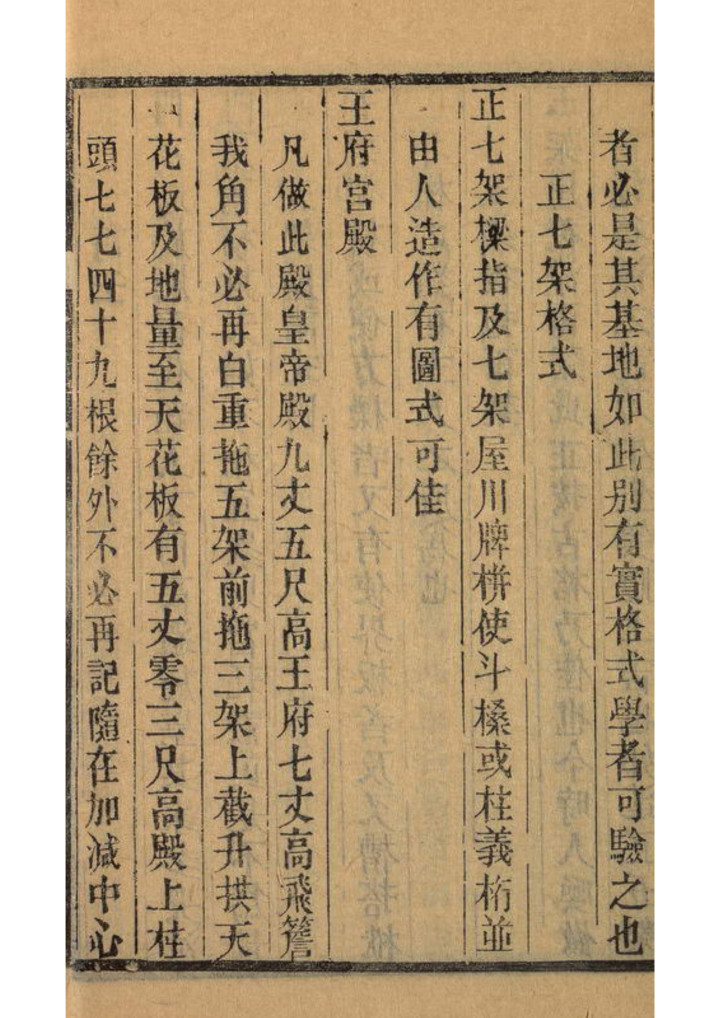 者必是其基地如此别有實格式學者可驗之也
正七架格式
正七架樑指及七架屋川牌栟使斗槔或柱義桁並
由人造作有圖式可佳
王府宫殿
凡做此殿皇帝殿九丈五尺高王府七丈高飛簷
我角不必再白重拖五架前拖三架上截升拱天
花板及地量至天花板有五丈零三尺高殿上柱
頭七七四十九根餘外不必再記隨在加减中心